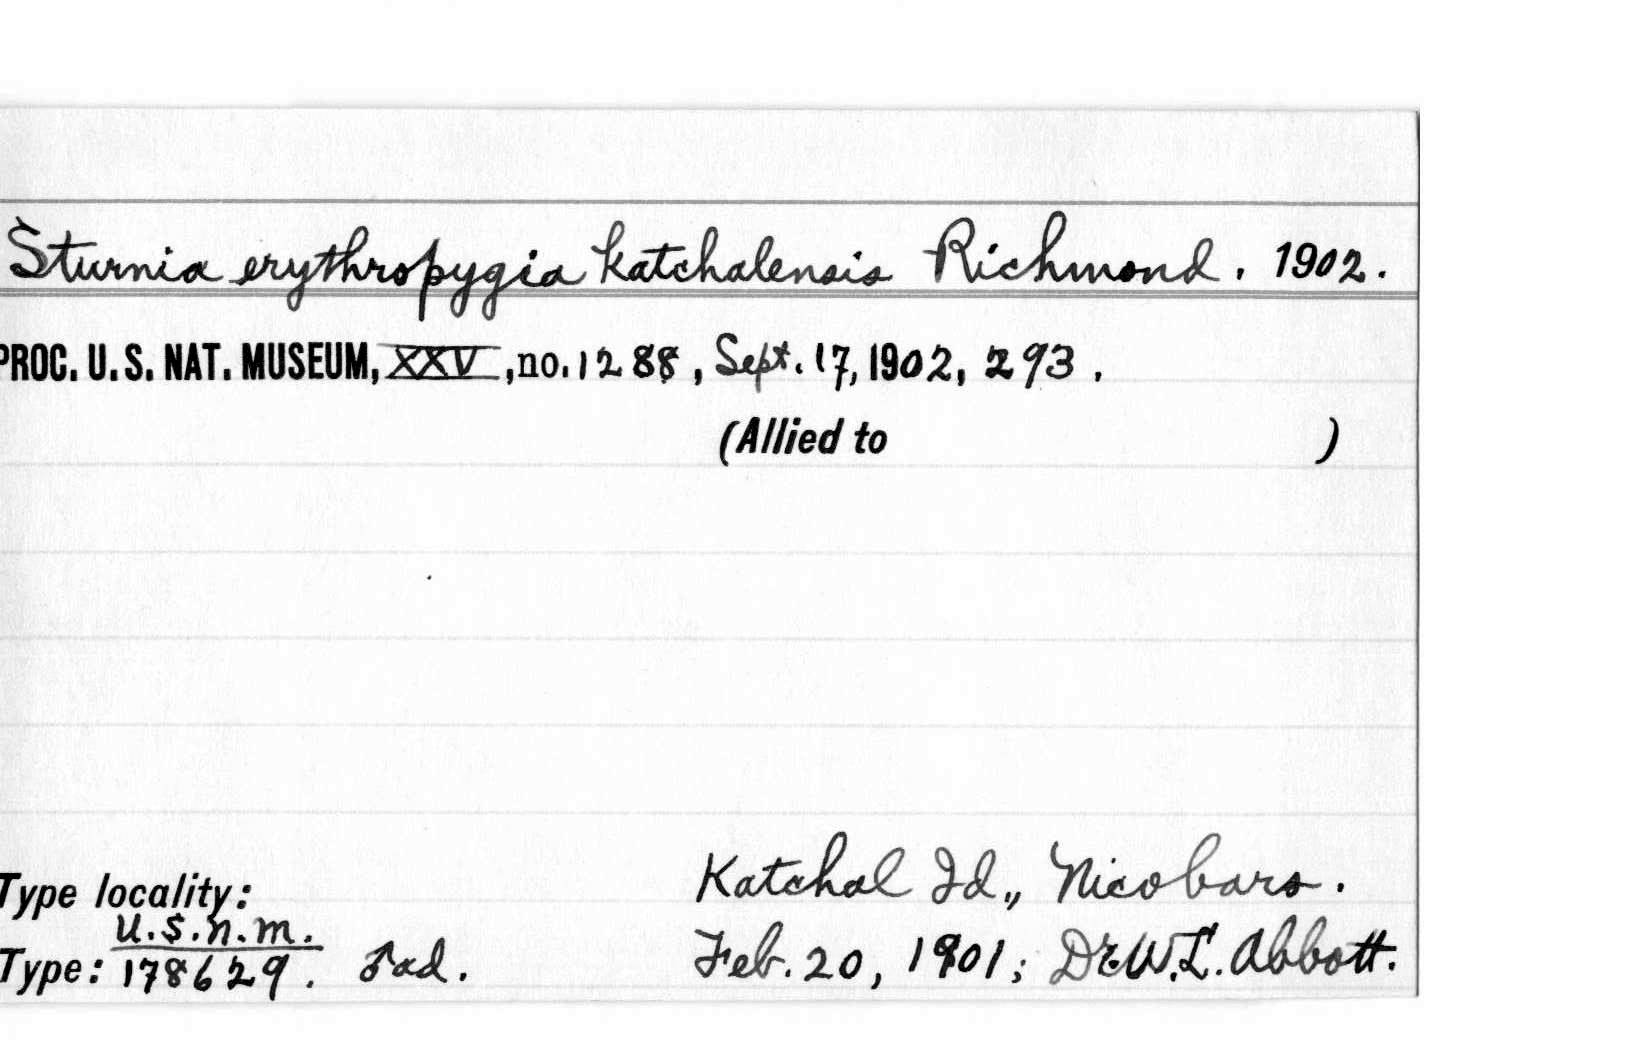 Sturnia erythropygia katchalensis Richmond. 1902.
PROC. U.S. NAT. MUSEUM, XXV, no. 1288, Sept. 17, 1902, 293.
(Allied to )
Katchal Id., Nicobars.
Type locality:
U.S.N.M.
Type: 178629. ♂ ad. Feb. 20, 1901; Dr. W. L. Abbott.